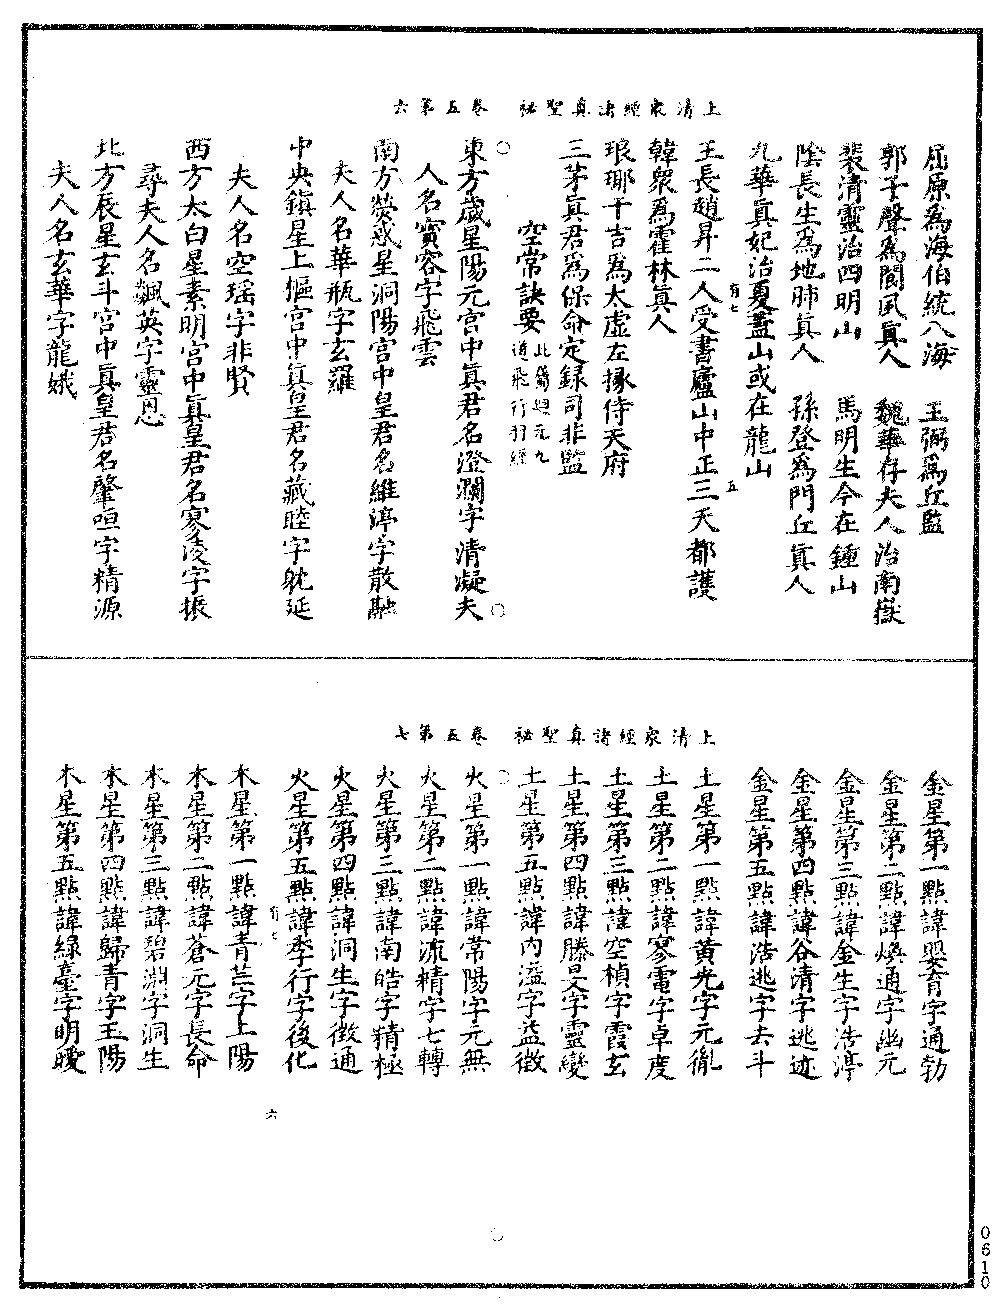 上清衆經諸真聖祕　卷五第六
屈原爲海伯統八海　王弼爲丘監
郭子聲爲閬風真人　魏華存夫人治南嶽
裴清靈治四明山　馬明生今在鍾山
陰長生爲地肺真人　孫登爲門丘真人
九華真妃治夏蓋山或在龍山
有七　五
王長趙昇二人受書廬山中正三天都護
韓衆爲霍林真人
琅琊干吉爲太虛左掾侍天府
三茅真君爲保命定録司非監
空常訣要　此篇與元九道飛行羽經
東方歲星陽元宮中真君名澄瀾字清凝夫
人名寶容字飛雲
南方熒惑星洞陽宮中皇君名維渟字散融
夫人名華瓶字玄羅
中央鎮星上樞宮中真皇君名藏睦字躭延
夫人名空瑶字非賢
西方太白星素明宮中真皇君名寥淩字振
尋夫人名飆英字靈恩
北方辰星玄斗宮中真皇君名肇晅字精源
夫人名玄華字龍娥
上清衆經諸真聖祕　卷五第七
金星第一點諱嬰育字通勃
金星第二點諱煥通字幽元
金星第三點諱金生字浩渟
金星第四點諱谷清字逃迹
金星第五點諱浩逃字去斗
土星第一點諱黄光字元胤
土星第二點諱寥電字卓度
土星第三點諱空楨字霞玄
土星第四點諱勝旻字靈變
土星第五點諱内溢字益徵
火星第一點諱常陽字元無
火星第二點諱流精字七轉
火星第三點諱南皓字精極
火星第四點諱洞生字徵通
火星第五點諱季行字後化
有七　六
木星第一點諱青芒字上陽
木星第二點諱蒼元字長命
木星第三點諱碧淵字洞生
木星第四點諱歸青字玉陽
木星第五點諱緑臺字明曖
0610